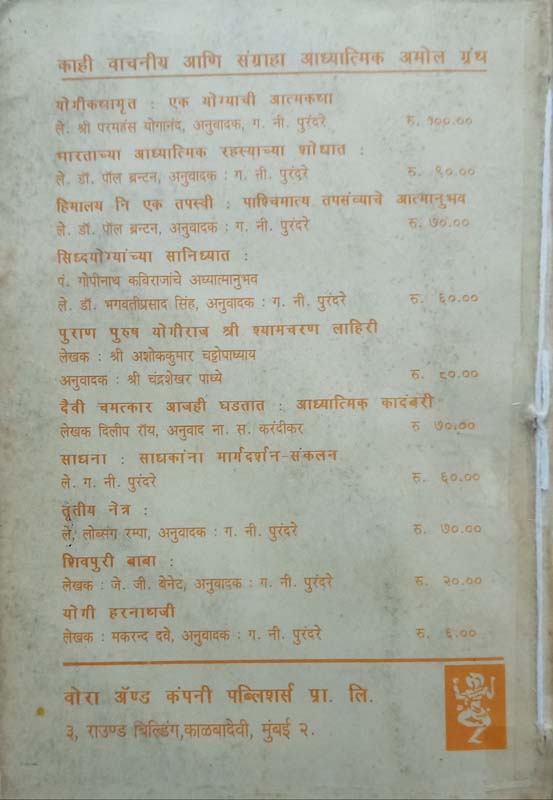 काही वाचनीय आणि संग्राहा आध्यात्मिक अमोल ग्रंथ
योगीकथामृत : एक योग्याची आत्मकथा
ले. श्री परमहंस योगानंद, अनुवादक, ग. नी. पुरंदरे रु. १००.००
भारताच्या आध्यात्मिक रहस्याच्या शोधात :
ले. डॉ. पॉल ब्रन्टन, अनुवादक : ग. नी. पुरंदरे रु. ९०.००
हिमालय नि एक तपस्वी : पाश्चिमात्य तपसव्याचे आत्मानुभव
ले. डॉ. पॉल ब्रन्टन, अनुवादक : ग. नी. पुरंदरे रु. ७०.००
सिध्दयोग्यांच्या सानिध्यात :
पं. गोपीनाथ कविराजांचे अध्यात्मानुभव
ले. डॉ. भगवतीप्रसाद सिंह, अनुवादक : ग. नी. पुरंदरे रु. ६०.००
पुराण पुरुष योगीराज श्री श्यामचरण लाहिरी
लेखक : श्री अशोककुमार चट्टोपाध्याय
अनुवादक : श्री चंद्रशेखर पाध्ये रु. ८०.००
दैवी चमत्कार आजही घडतात : आध्यात्मिक कादंबरी
लेखक दिलीप रॉय, अनुवाद ना. स. करंदीकर रु ७०.००
साधना : साधकांना मार्गदर्शन-संकलन
ले. ग. नी. पुरंदरे रु. ६०.००
तृतीय नेत्र :
ले. लोब्संग रम्पा, अनुवादक : ग. नी. पुरंदरे रु. ७०.००
शिवपुरी बाबा :
लेखक : जे. जी. बेनेट, अनुवादक : ग. नी. पुरंदरे रु. २०.००
योगी हरनाथजी
लेखक : मकरन्द दवे, अनुवादक : ग. नी. पुरंदरे रु. ६.००
वोरा ॲण्ड कंपनी पब्लिशर्स प्रा. लि.
३, राउण्ड बिल्डिंग,काळबादेवी, मुंबई २.